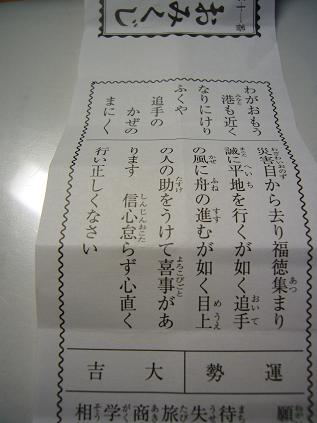 おみくじ
わがおもう
港も近く
なりにけり
ふくや
追手の
かぜの
まに〱
災害自から去り福徳集まり
誠に平地を行くが如く追手
の風に舟の進むが如く目上
の人の助をうけて喜事があ
ります 信心怠らず心直く
行い正しくなさい
運勢
大吉
願
待
失
旅
商
学
相